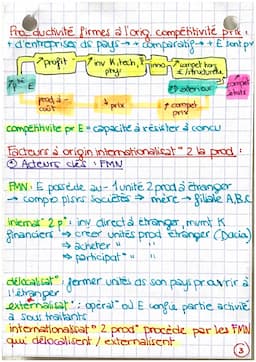 Productivité firmes à l'orig. compétitivité prix :
+ d'entreprises de pays → + comparatif → + E sont pr
↗ profit
↗ inv K, tech, phys
inno
↗ compet hors
structurelle
↗ pté
E
↗ extérieur
↗ compet
↘ prod à
coût
↘ prix
↗ compet
prix
compétitivité pr E = capacité à résister à concu
Facteurs à origin internationalisat° 2 la prod :
① Acteurs clés : FMN
FMN : E possède au - 1 unité 2 prod à étranger
→ compo plsrs sociétés → mère → filiale A,B,C
internat° 2 p° : inv direct à étranger, mvmt K
financiers → creer unités prod étranger (Dacia)
→ acheter " "
→ participat° " "
délocalisat° : fermer unités ds son pays pr ouvrir à
l'étranger
externalisat° : opérat° où E confie partie activité
à sous traitants
internationalisat° 2 prod° procède par les FMN
qui délocalisent / externalisent
3